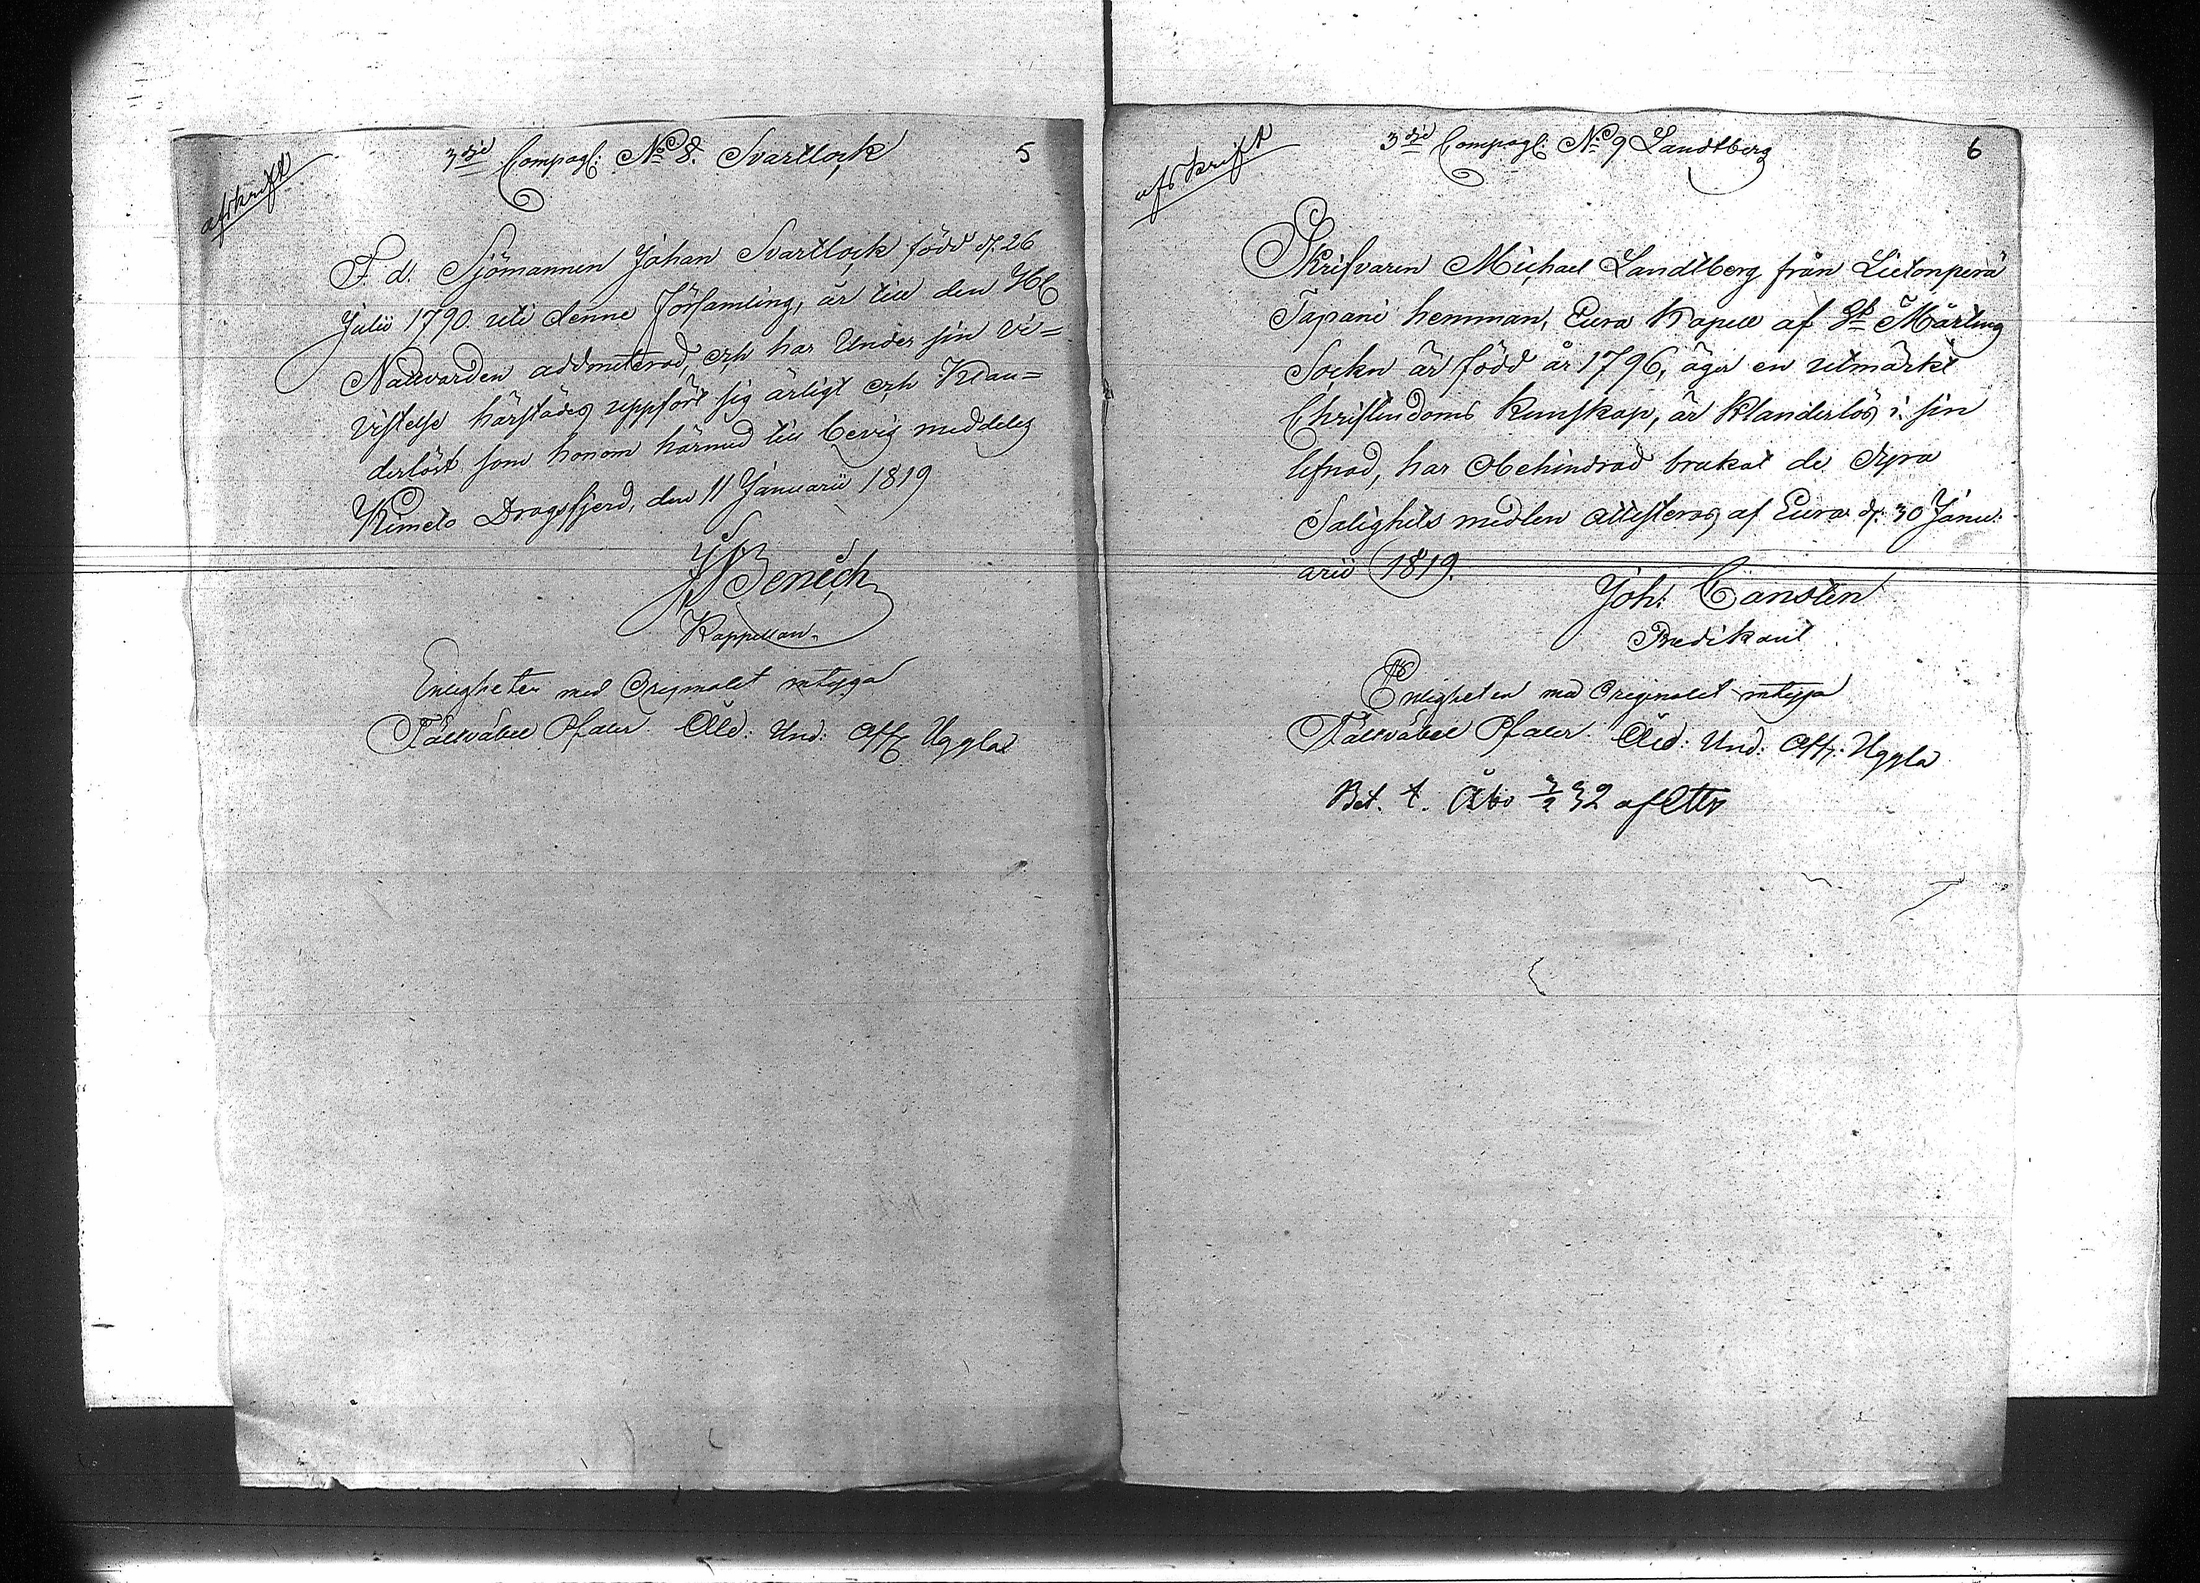 afskrift
3dje Compagl: No 8. Svartlock
5
F. d. Sjömannen Johan Svartlock född d. 26
Julii 1790. uti denne församling, är till den Hl
Nattvarden admitterad, och har Under sin Vi=
vistelse härstädes uppfört sig ärligt och Klan=
derlöst som honom härmed till bevis meddeles
Kimeto Dragsfjerd, den 11 Januarii 1819
Kappellan.
Enligheten med Originalet intyga
Fältväbel Pfaler Äld: Und: Off: Uggla
afskrift
3dje Compagl: No 9 Landtberg
6
Skrifvaren Michael Landtberg från Lietonperä
Tapani hemman, Eura Kapell af St Mårtins
Sockn är född år 1796, äger en utmärkt
Christendoms Kunskap, är Klanderlös i sin
lefnad, har obehindrad brukat de dyra
Salighets medlen attesteras af Eura d. 30 Janu-
arii 1819.
Joh:
Predikant
Enligheten med Originalet intyga
Fältväbel Pfaler Äld: Und: Off: Uggla
Bet. t. Åbo 3/2 32 af